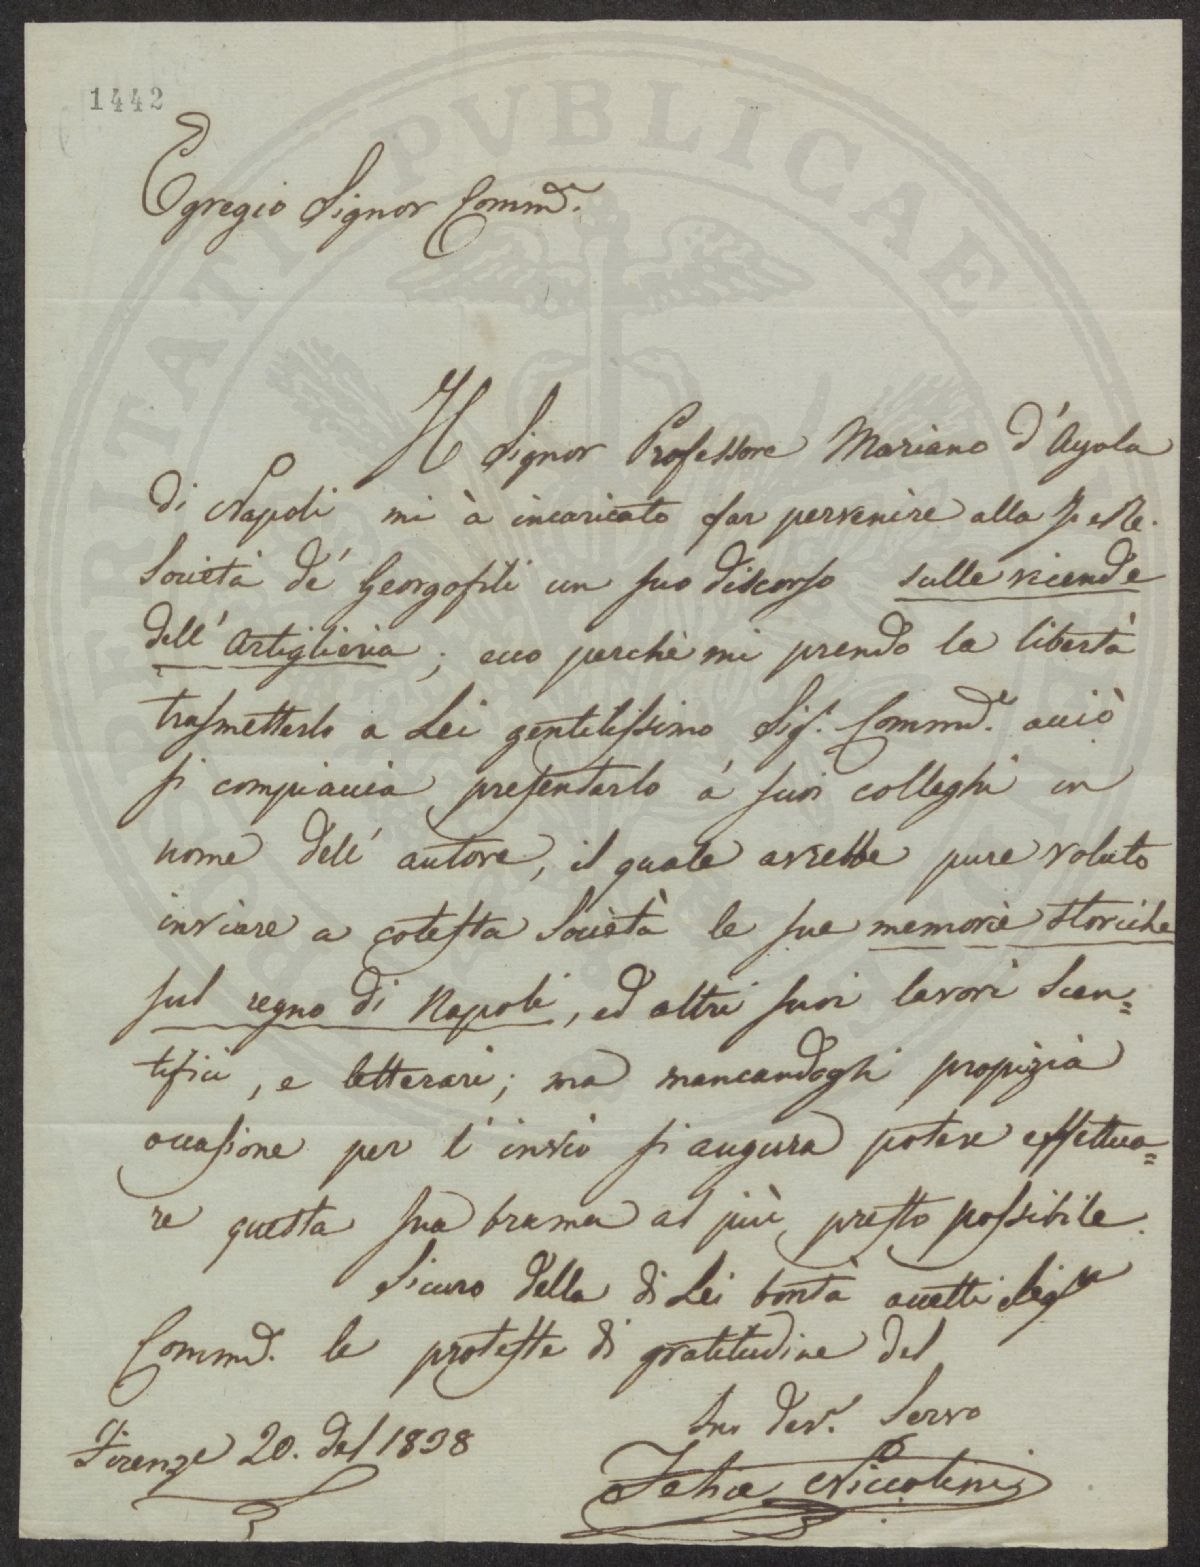 1442
Egregio Signor Commd.e
Il Signor Professore Mariano d'Ayala
di Napoli mi à incaricato far pervenire alla I. e Re.
Società de' Georgofili un suo discorso sulle vicende
dell' Artiglieria ; ecco perchè mi prendo la libertà
trasmetterlo a Lei gentilissimo Sig.r Commd.e acciò
si compiaccia presentarlo a' suoi colleghi in
nome dell' autore, il quale avrebbe pure voluto
inviare a cotesta Società le sue memorie storiche
sul regno di Napoli, ed altri suoi lavori scien=
tifici, e letterari; ma mancandogli propizia
occasione per l' invio si augura potere effettua=
re questa sua brama al più presto possibile.
Sicuro della di Lei bontà accetti Sig.r
Commd. le proteste di gratitudine del
Suo Dev.o Servo
Firenze 20. del 1838
Felice Niccolini
PROSPERITATI PVBLICAE